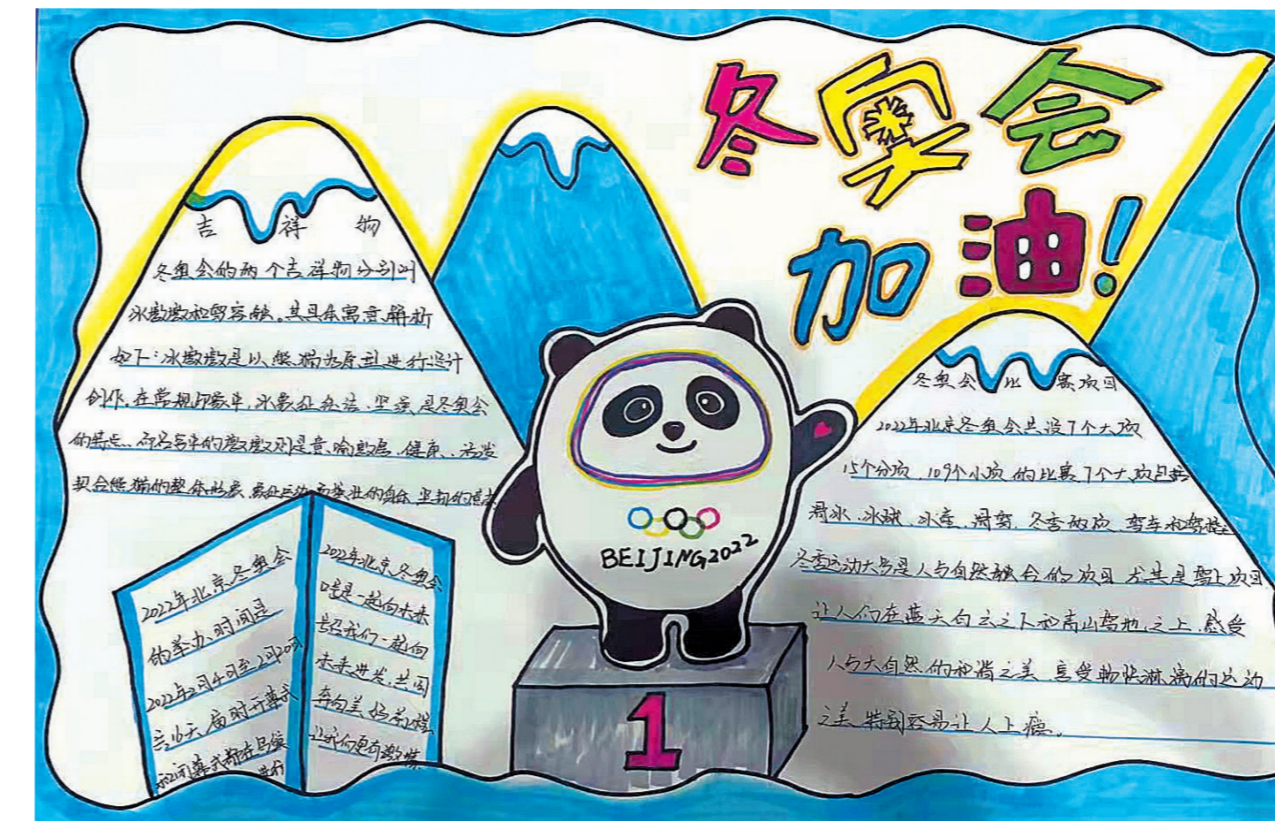 冬奥会
加油!
吉祥物
冬奥会的两个吉祥物分别叫
冰墩墩和雪容融。其具体寓意解析
如下:冰墩墩是以熊猫为原型进行设计
创作,在常规印象中,冰象征纯洁、坚强,是冬奥会
的特点、而名字中的墩墩则是意喻敦厚、健康、活泼
契合熊猫的整体形象,象征运动
2022年北京冬奥会
的举办时间是
2022年2月4日至2月20日
共16天,届时开幕式
2022年北京冬奥会
口号是一起向未来
号召我们一起向
未来进发,共同
奔向美好前程
让我们更有激情
BEIJING2022
1
冬奥会比赛项目
2022年北京冬奥会共设7个大项
15个分项,109个小项的比赛7个大项包括
滑冰、冰球、冰壶、滑雪、冬季两项、雪车和雪橇
冬季运动大多是人与自然融合的项目 尤其是雪上项目
让人们在蓝天白云之下和高山雪地之上,感受
人与大自然的和谐之美 享受畅快淋漓的运动
之美 特别容易让人上瘾。